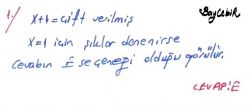 1-) x+4 = çift verilmiş
BayCebir
x=1 için şıklar denenirse
cevabın E seçeneği olduğu görülür.
CEVAP: E